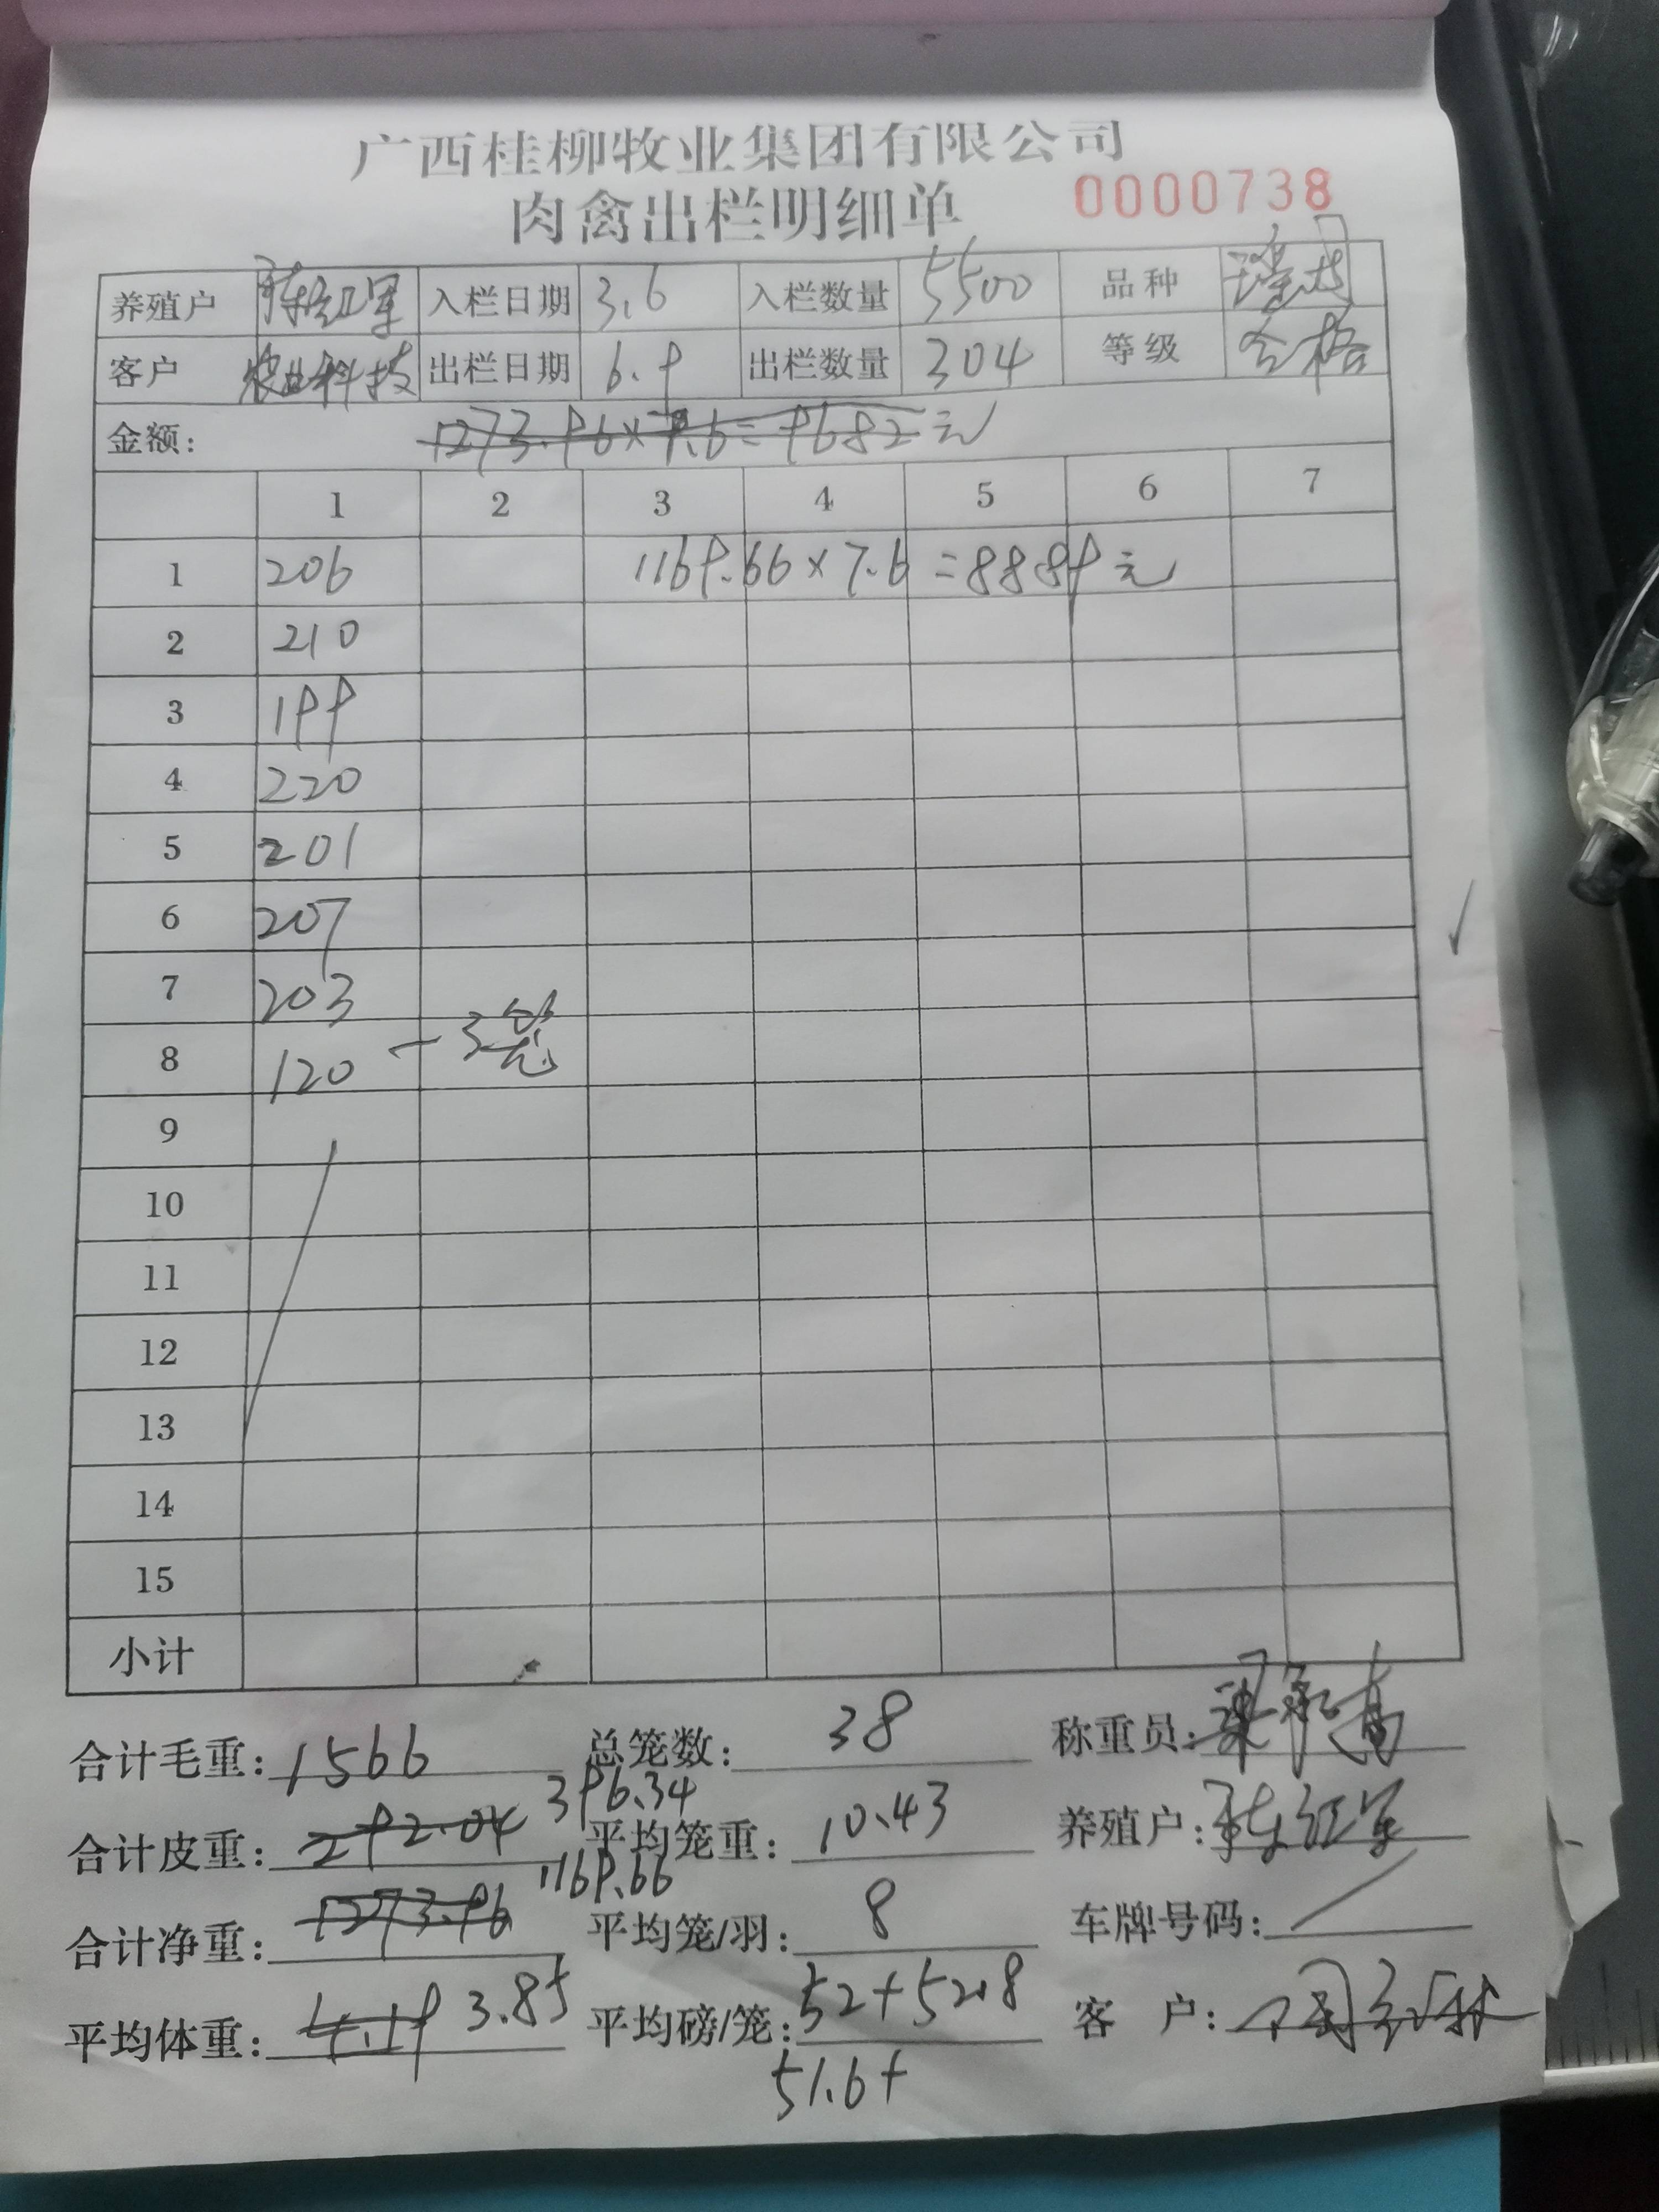 广西桂柳牧业集团有限公司
肉禽出栏明细单 0000738
养殖户 陈红军 入栏日期 3.6 入栏数量 5500 品种 瑶鸡
客户 农业科技 出栏日期 6.9 出栏数量 304 等级 合格
金额: 1273.96×7.6=9682元
1 2 3 4 5 6 7
1 206 1169.66×7.6=8889元
2 210
3 199
4 220
5 201
6 207
7 203
8 120 一3笼
9
10
11
12
13
14
15
小计
合计毛重: 1566 总笼数: 38 称重员:
合计皮重: 292.04 396.34 平均笼重: 10.43 养殖户: 陈红军
合计净重: 1273.96 1169.66 平均笼/羽: 8 车牌号码: /
平均体重: 4.19 3.85 平均磅/笼: 52+52.8 客 户:
51.6+